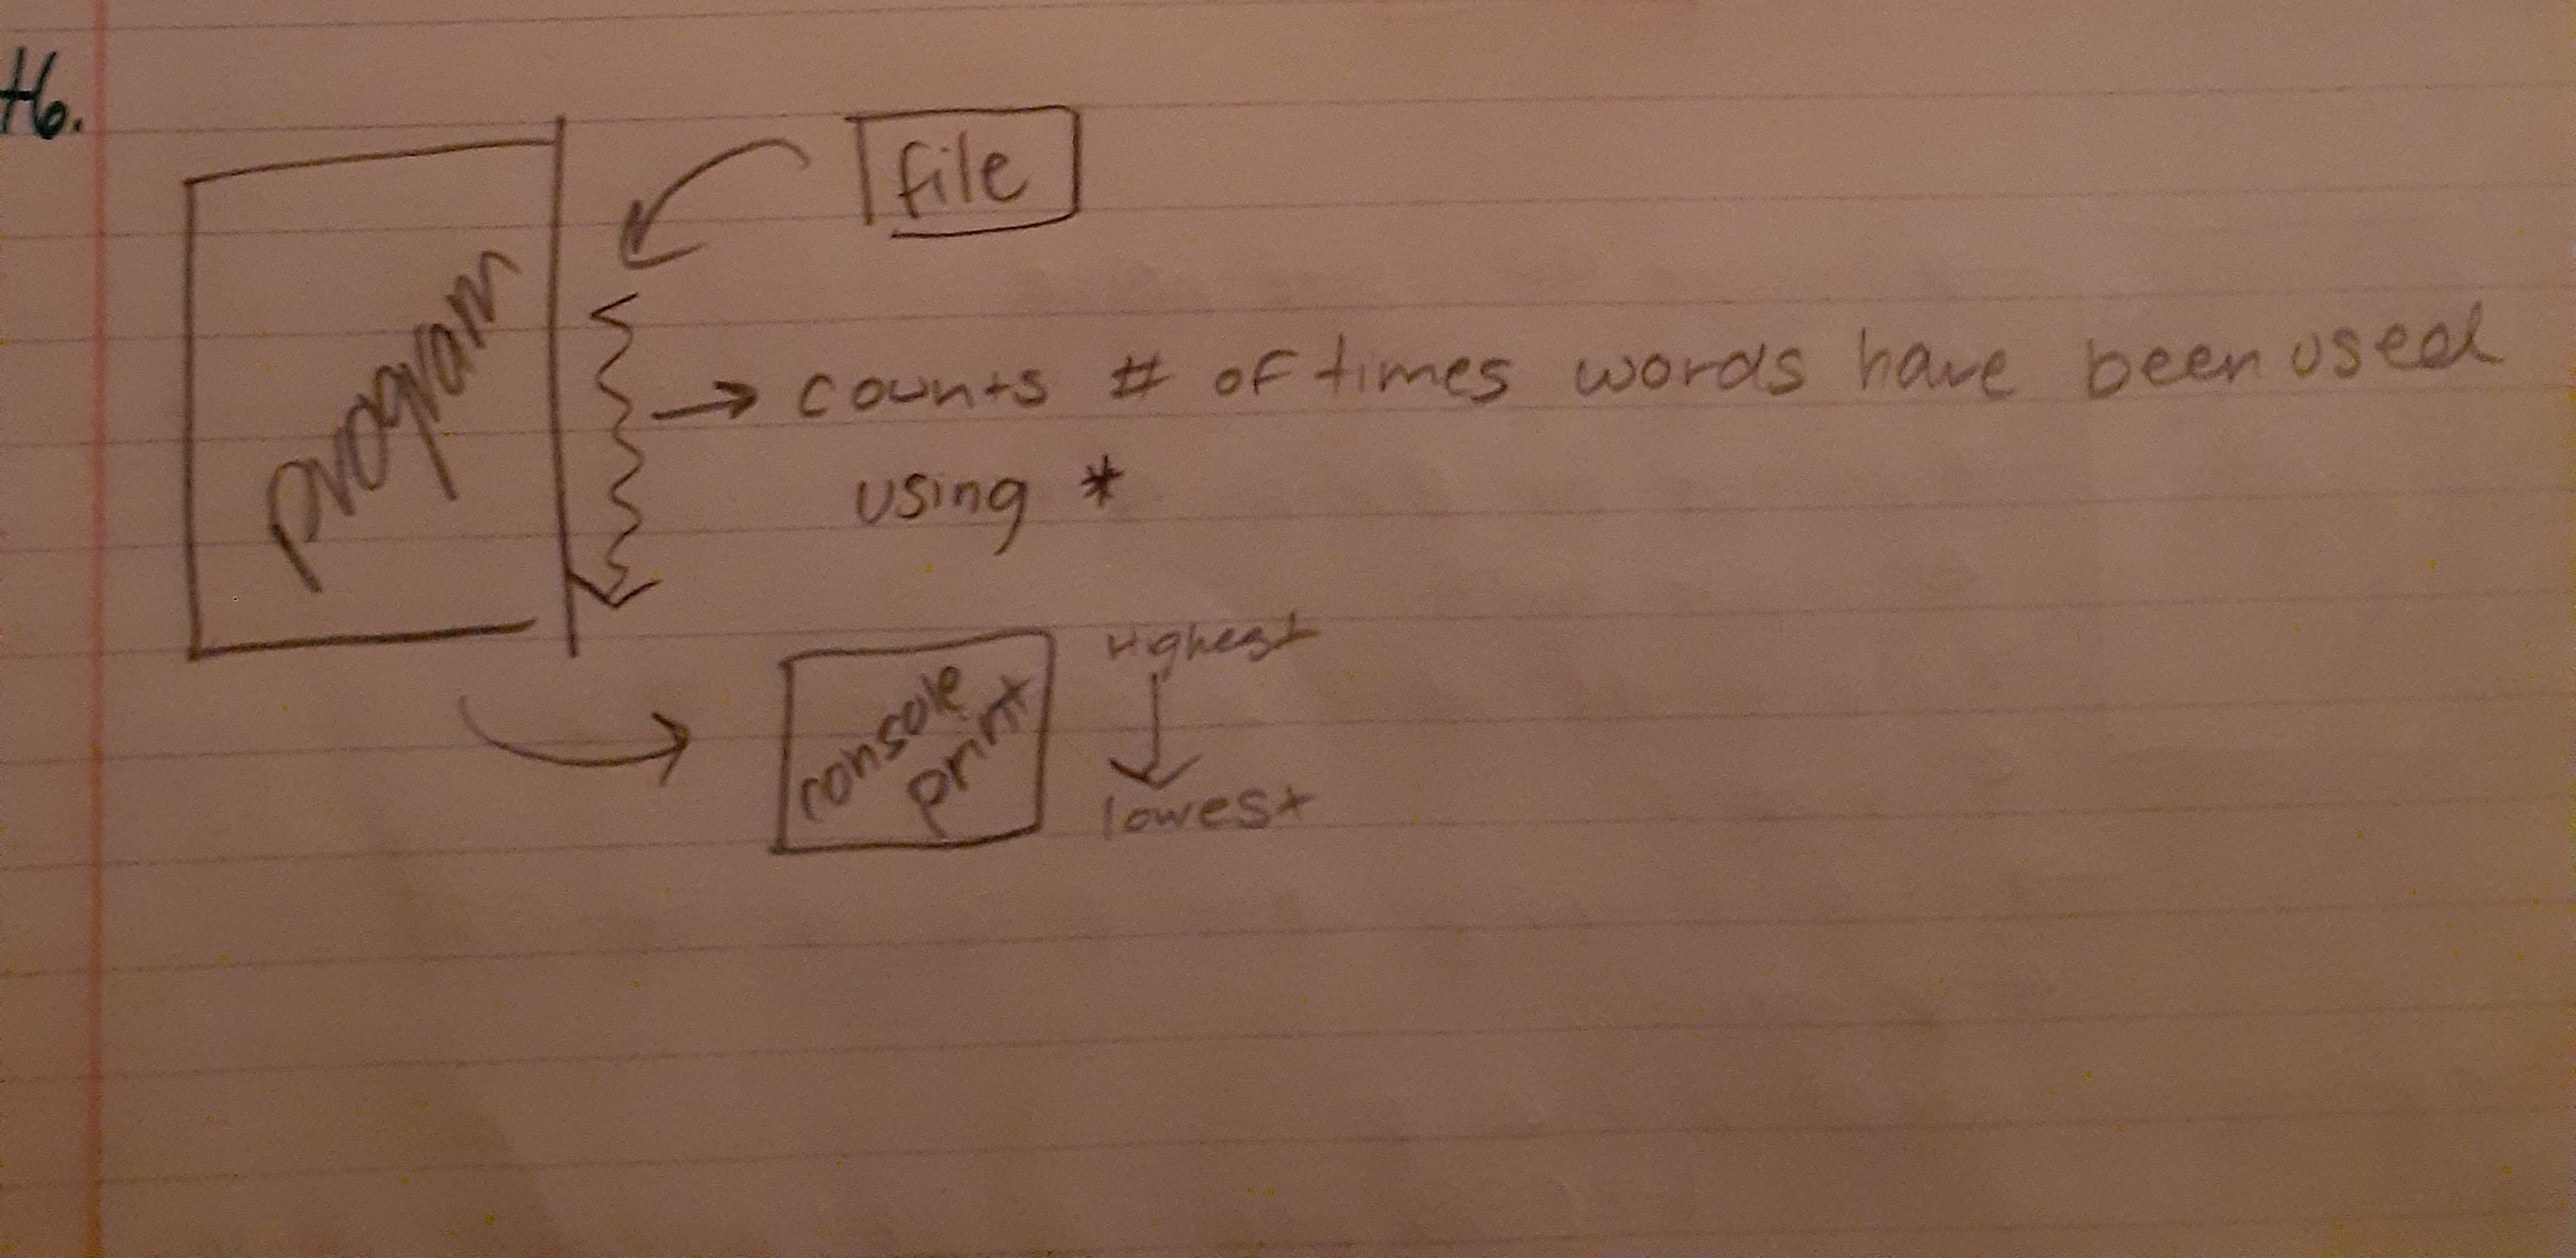 H6.
file
program
→ counts # of times words have been used
using *
console
print
Highest
lowest